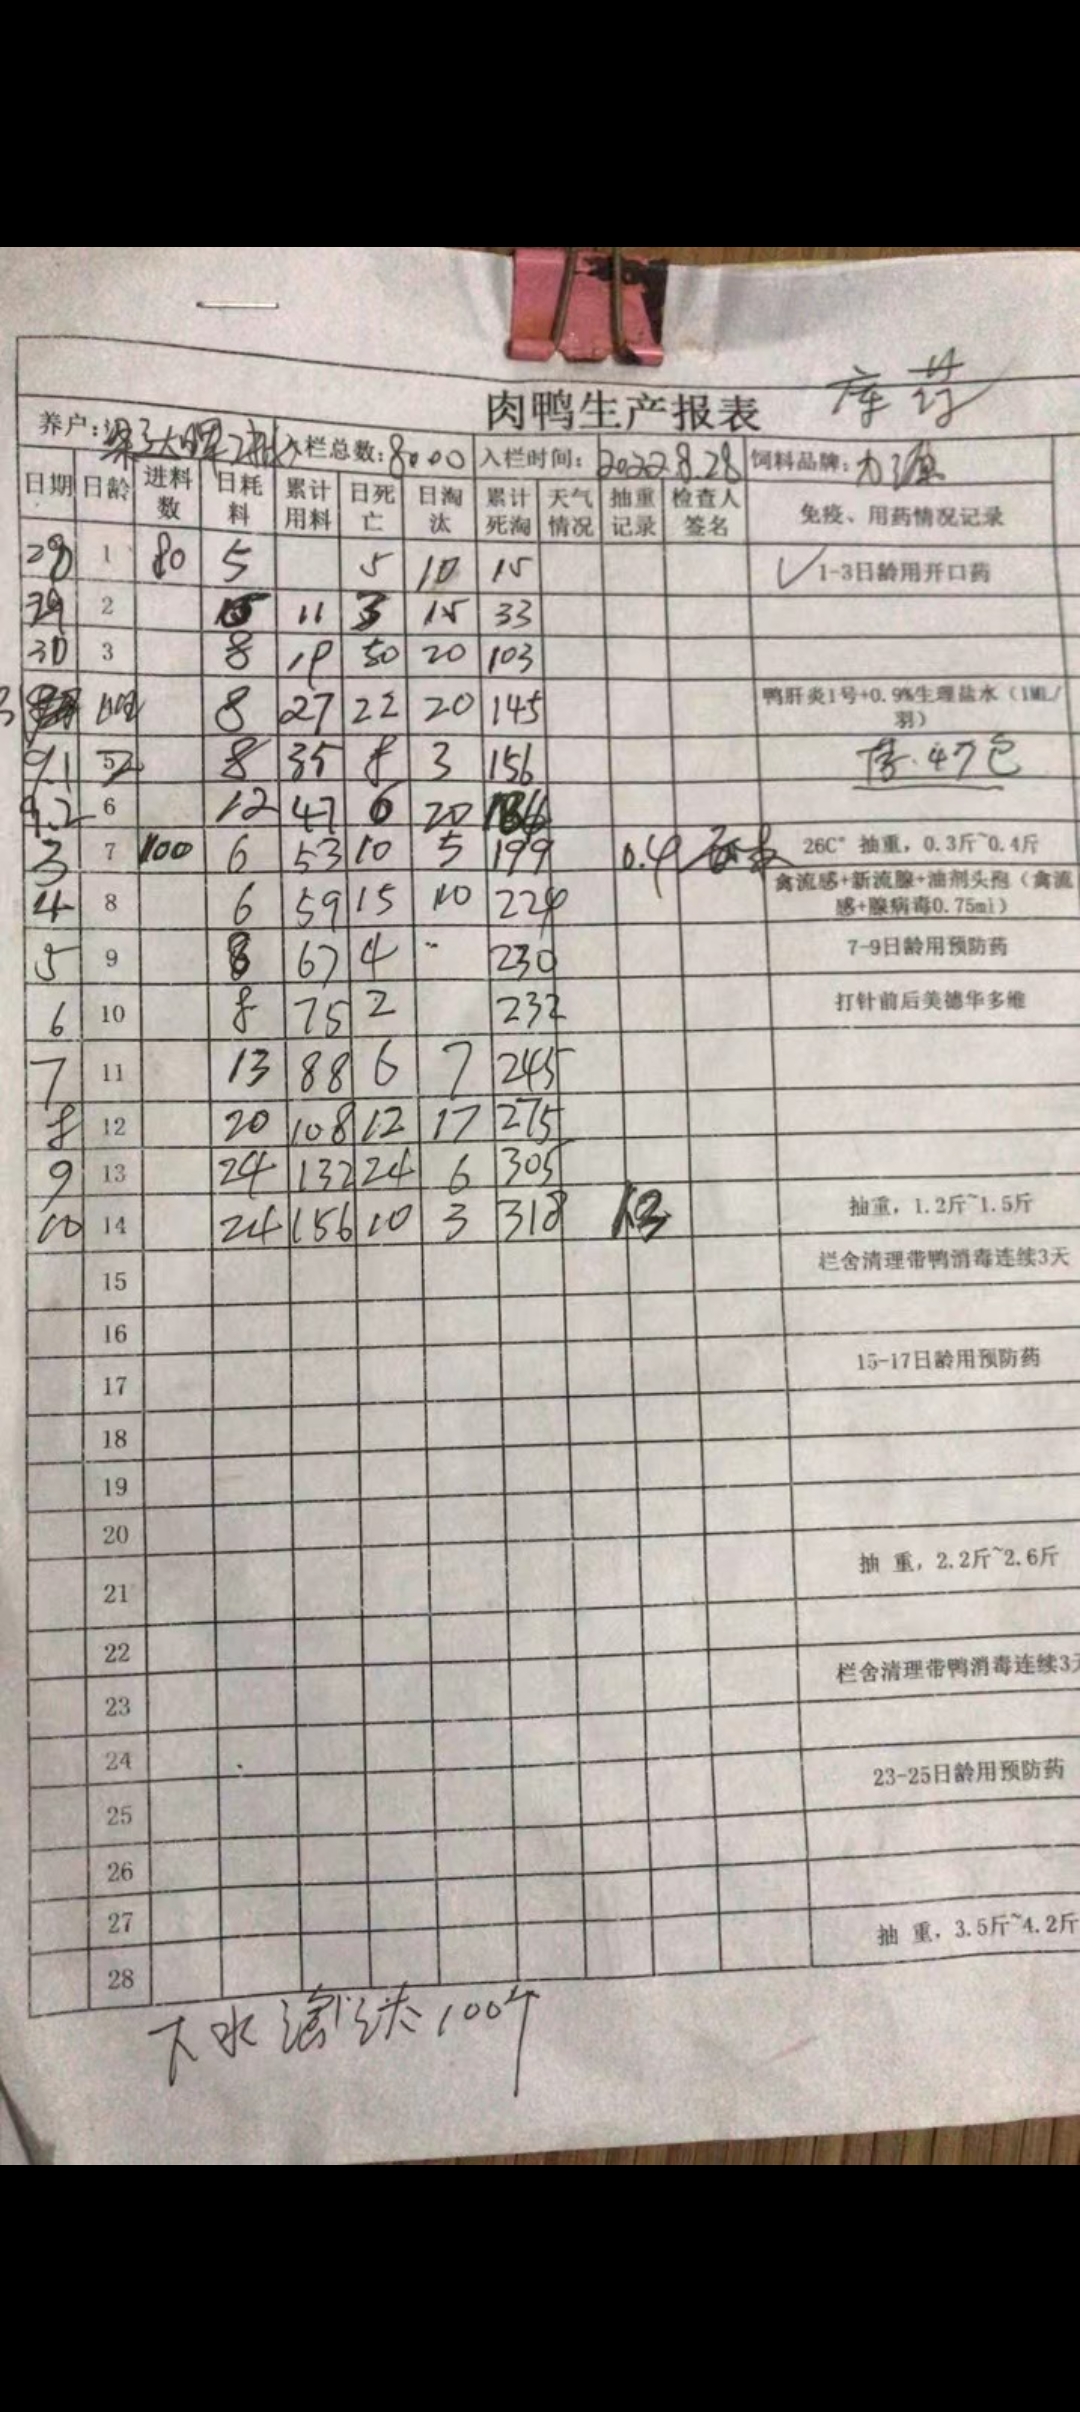 肉鸭生产报表
养户: 入栏总数:8000 入栏时间:2022.8.28 饲料品牌:
日期 日龄 进料数 日耗料 累计用料 日死亡 日淘汰 累计死淘 天气情况 抽重记录 检查人签名 免疫、用药情况记录
28 1 80 5 5 10 15 1-3日龄用开口药
29 2 11 3 15 33
30 3 8 19 50 20 103
8 27 22 20 145 鸭肝炎1号+0.9%生理盐水（1ML/羽）
9.1 5 8 35 8 3 156 47包
9.2 6 12 47 6 20
3 7 100 6 53 10 5 199 0.4 26C° 抽重，0.3斤~0.4斤
4 8 6 59 15 10 224 禽流感+新流腺+油剂头孢（禽流感+腺病毒0.75ml）
5 9 8 67 4 230 7-9日龄用预防药
6 10 8 75 2 232 打针前后美德华多维
7 11 13 88 6 7 245
8 12 20 108 12 17 275
9 13 24 132 24 6 305
10 14 24 156 10 3 318 抽重，1.2斤~1.5斤
15 栏舍清理带鸭消毒连续3天
16
17 15-17日龄用预防药
18
19
20
21 抽 重，2.2斤~2.6斤
22
23 栏舍清理带鸭消毒连续3天
24
25 23-25日龄用预防药
26
27
28 抽 重，3.5斤~4.2斤
下水 100个